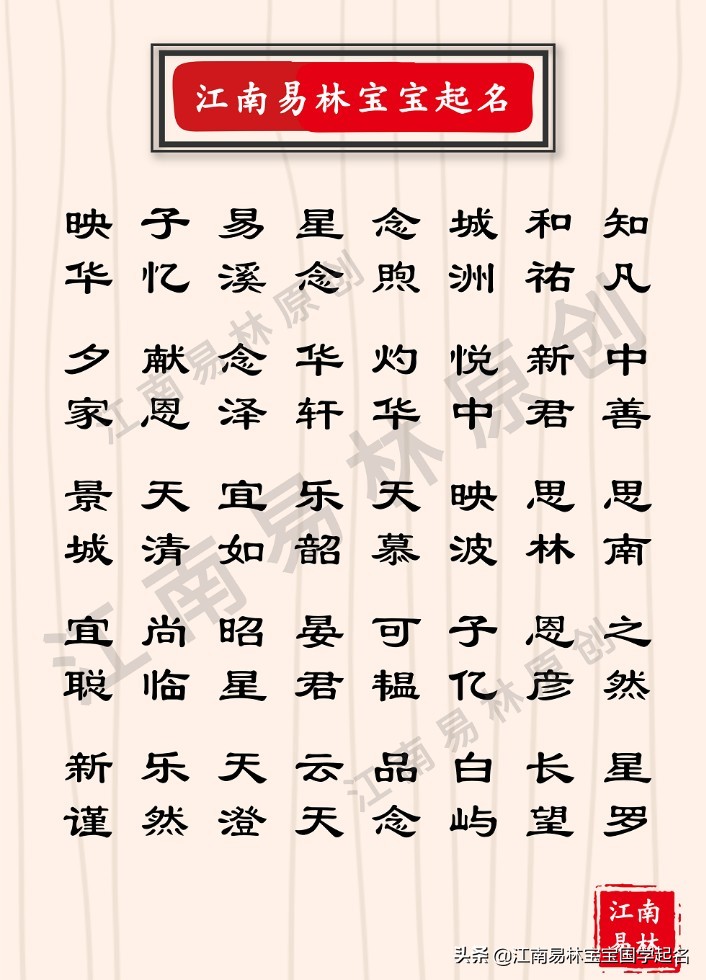 江南易林宝宝起名
映 子 易 星 念 城 和 知
华 忆 溪 念 煦 洲 祐 凡
夕 献 念 华 灼 悦 新 中
家 恩 泽 轩 华 中 君 善
景 天 宜 乐 天 映 思 思
城 清 如 韶 慕 波 林 南
宜 尚 昭 晏 可 子 恩 之
聪 临 星 君 韫 亿 彦 然
新 乐 天 云 品 白 长 星
谨 然 澄 天 念 屿 望 罗
江南易林原创
江南易林原创
江南易林原创
江南
易林
头条 @江南易林宝宝国学起名